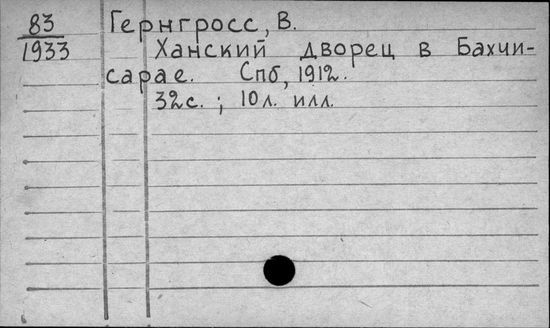 83 Гернгросс, В.
1933 Ханский дворец в Бахчи-
сарае. Спб, 1912.
32с. ; 10л. илл.